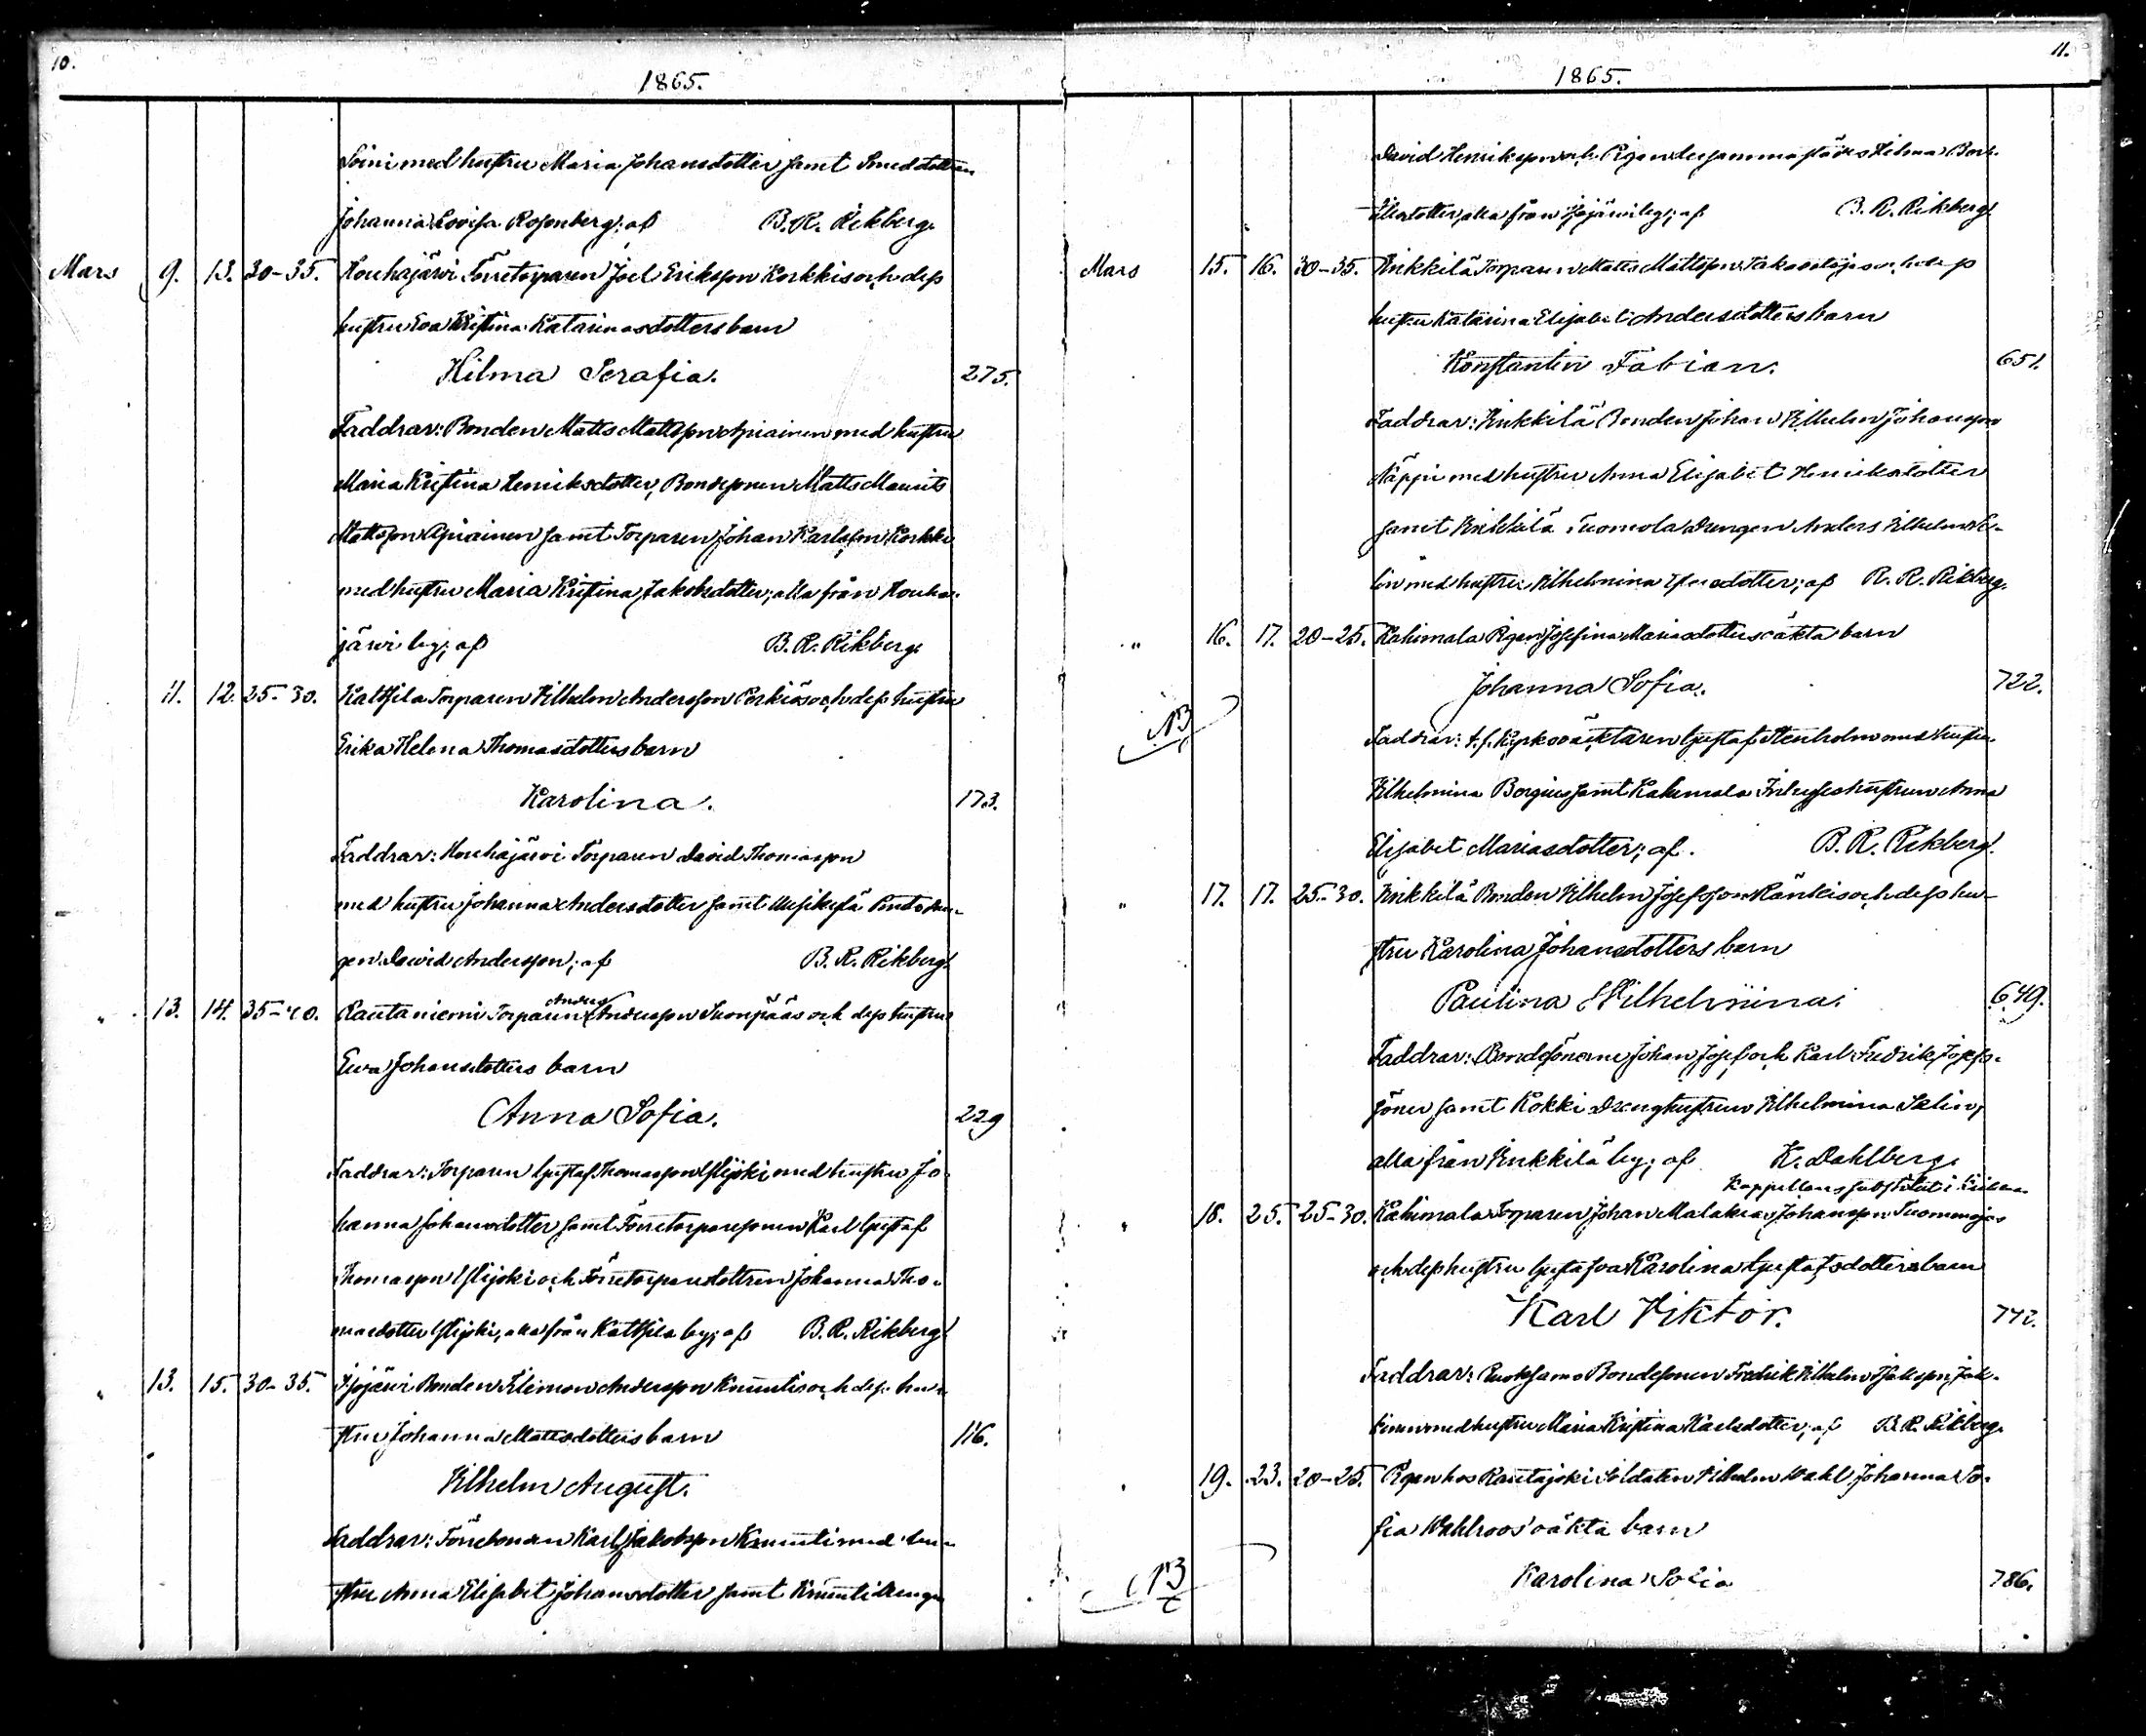 10.
1865.
Soini med hustru Maria Johansdotter samt Smedsdottren
Johanna Lovisa Rosenberg; af B. R. Rikberg.
Mars 9. 13. 30-35. Houhajärvi Förretorparen Joel Eriksson Korkkis och dess
hustru Eva Kristina Katarinasdotters barn
Hilma Serafia. 275.
Faddrar: Bonden Matts Mattsson Apiainen med hustru
Maria Kristina Henriksdotter, Bondesonen Matts Maurits
Mattsson Apiainen samt Torparen Johan Karlsson Korkki
med hustru Maria Kristina Jakobsdotter, alla från Houha-
järvi by; af B. R. Rikberg.
11. 12. 25-30. Kalthila Torparen Vilhelm Andersson Perkiös och dess hustru
Erika Helena Thomasdotters barn
Karolina. 173.
Faddrar: Houhajärvi Torparen David Thomasson
med hustru Johanna Andersdotter samt
gen David Andersson; af B. R. Rikberg.
" 13. 14. 35-40. Rautaniemi Torparen Anders Andersson Suonpääs och dess hustru
Eva Johansdotters barn
Anna Sofia. 229
Faddrar: Torparen Gustaf Thomasson Ylijoki med hustru Jo-
hanna Johansdotter samt Förretorparesonen Karl Gustaf
Thomasson Ylijoki och Förretorparedottren Johanna Tho-
masdotter Ylijoki, alla från Kalthila by; af B. R. Rikberg.
" 13. 15. 30-35. Jyjärvi Bonden Klemon Andersson Knuutis och dess hu-
stru Johanna Mattsdotters barn 116.
Vilhelm August.
Faddrar: Förrebonden Karl Jakobsson Knuuti med hu-
stru Anna Elisabet Johansdotter samt Knuuti drengen
11.
1865.
David Henriksson och Pigan dersammastädes Hilma
alla från by; af B. R. Rikberg.
Mars 15. 16. 30-35. Kinkkilä Torparen Matts Mattsson och dess
hustru Katarina Elisabet Andersdotters barn
Konstantin Fabian. 651.
Faddrar: Kinkkilä Bonden Johan Vilhelm Johansson
Näppi med hustru Anna Elisabet Henriksdotter
samt Kinkkilä Tuomola Drengen Anders Vilhelm
lin med hustru Vilhelmina af B. R. Rikberg.
" 16. 17. 20-25. Kahimala Pigan Josefina Mariasdotters oäkta barn
Johanna Sofia. 722.
NB
Faddrar: t.f. Kyrkoväktaren Gustaf Stenholm med hustru
Vilhelmina Borgius samt Kahimala Inhyseshustrun Anna
Elisabet Mariasdotter; af B. R. Rikberg.
" 17. 17. 25-30. Kinkkilä Bonden Vilhelm Josefsson Ränkis och dess hu-
stru Karolina Johansdotters barn
Paulina Wilhelmina. 649.
Faddrar: Bondesönerne Johan Josef och Karl Fredrik Josefs-
söner samt Kokki Drenghustrun Vilhelmina Salin,
alla från Kinkkilä by; af K. Dahlberg.
Kappellans substitut i
" 18. 25. 25-30. Kahimala Torparen Johan Malakias Johansson Tuomojas
och dess hustru Gustafva Karolina Gustafsdotters barn
Karl Viktor. 742.
Faddrar: Bondesonen Fredrik Vilhelm
med hustru Maria Kristina Karlsdotter; af B. R. Rikberg.
" 19. 23. 20-25. Pigan hos Rautajoki Soldaten Vilhelm Wahl Johanna So-
fia Wahlroos' oäkta barn
NB
Karolina Sofia 786.